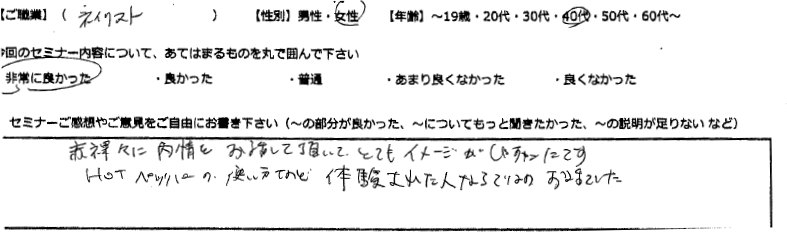 【ご職業】（ ネイリスト ） 【性別】男性・女性 【年齢】～19歳・20代・30代・40代・50代・60代～
今回のセミナー内容について、あてはまるものを丸で囲んで下さい
非常に良かった ・良かった ・普通 ・あまり良くなかった ・良くなかった
セミナーご感想やご意見をご自由にお書き下さい（～の部分が良かった、～についてもっと聞きたかった、～の説明が足りない など）
赤裸々に内情を お話して頂いて、とても イメージが です
HOT ペッパーの 使い方など 体験された人ならではの お話でした